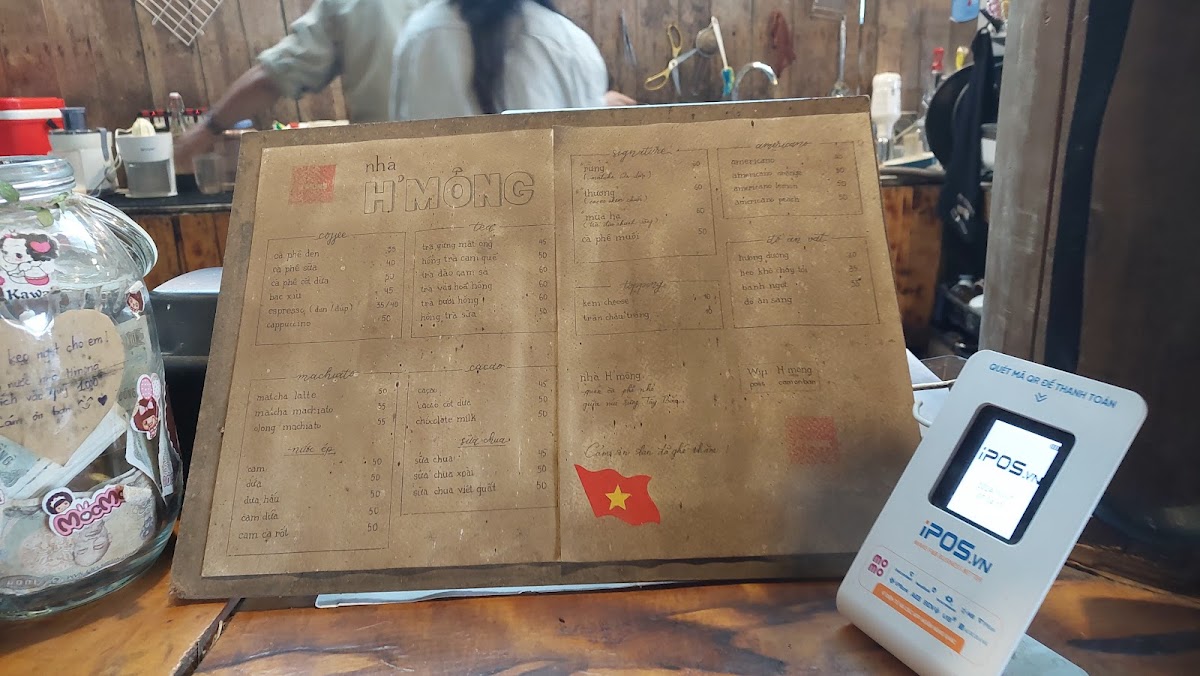 nhà
H'MÔNG
coffee
cà phê đen 35
cà phê sữa 40
cà phê cốt dừa 50
bạc xỉu 45
espresso (đơn/dúp) 35/40
cappuccino 50
tea
trà gừng mật ong 45
hồng trà cam quế 50
trà đào cam sả 60
trà vải hoa hồng 60
trà bưởi hồng 60
hồng trà sữa 50
machiato
matcha latte 50
matcha machiato 55
olong machiato 55
nước ép
cam 50
dứa 50
dưa hấu 50
cam dứa 50
cam cà rốt 50
cacao
cacao 45
cacao cốt dừa 50
chocolate milk 50
sữa chua
sữa chua 45
sữa chua xoài 50
sữa chua việt quất 50
signature
rừng 60
thương 60
mùa hạ 60
cà phê muối 50
topping
kem cheese 10
trân châu trắng
americano
americano
americano orange
americano lemon 50
americano peach 50
đồ ăn vặt
hướng dương
heo khô cháy tỏi 35
bánh ngọt 35
đồ ăn sáng
nhà H'mông
quán cà phê nhỏ
giữa núi rừng Tây
Wifi H'mông
pass camonban
Cảm ơn bạn đã ghé thăm
Kawa
kẹo ngọt cho em!
cảm ơn bạn
MooMo
QUÉT MÃ QR ĐỂ THANH TOÁN
iPOS.vn
iPOS.VN
MAKING F&B BUSINESS BETTER
mo
mo